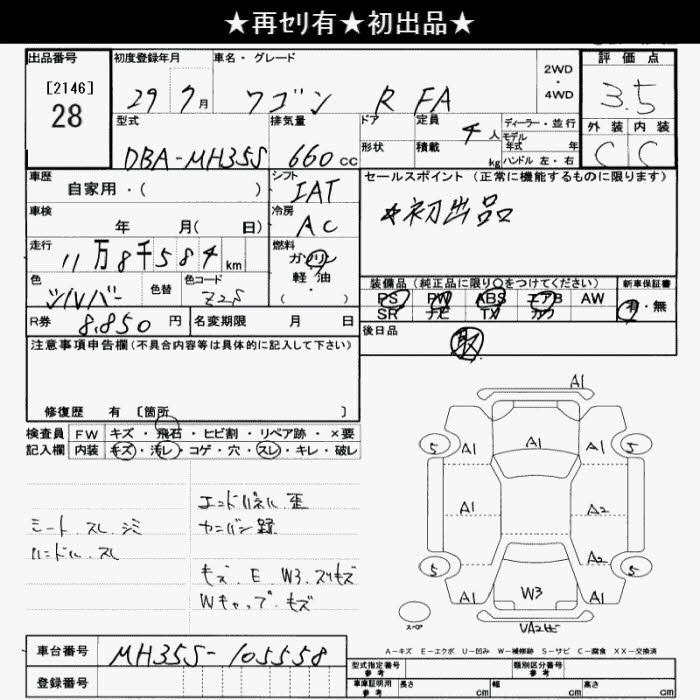 ★再セリ有★初出品★
出品番号 初度登録年月 車名・グレード 2WD・4WD 評価点
[2146]
28 29 7月 ワゴン R FA 3.5
型式 排気量 ドア 定員 4人 ディーラー・並行 外装 内装
モデル年式 年
形状 積載 kg ハンドル 左・右
DBA-MH35S 660cc C C
車歴 シフト セールスポイント (正常に機能するものに限ります)
自家用・( ) IAT
☆初出品
車検 冷房
年 月( 日) AC
走行 燃料
11万8千584km ガソリン
軽油
( ・ )
色 色替 色コード 装備品 (純正品に限り○をつけてください) 新車保証書
シルバー Z2S PS PW ABS エアB AW 有・無
SR ナビ TV カワ
R券 8,850円 名変期限 月 日 後日品
取
注意事項申告欄(不具合内容等は具体的に記入して下さい)
修復歴 有 [箇所 ]
検査員 FW キズ・飛石・ヒビ割・リペア跡・×要
記入欄 内装 キズ・汚レ・コゲ・穴・スレ・キレ・破レ
エンドパネル 歪
シート.スレ.シミ
ハンドル.スレ
キズ.E W3.スリキズ
Wキャップ.キズ
A1
5 A1 A1 A1 5
A1 A2
A2
5 W3 5
A1 A1
スペア
A－キズ E－エクボ U－凹み W－補修跡 S－サビ C－腐食 XX－交換済
車台番号 MH35S-105558
登録番号
型式指定番号 参考 類別区分番号 参考
車庫証明用 参考 長さ cm 幅 cm 高さ cm